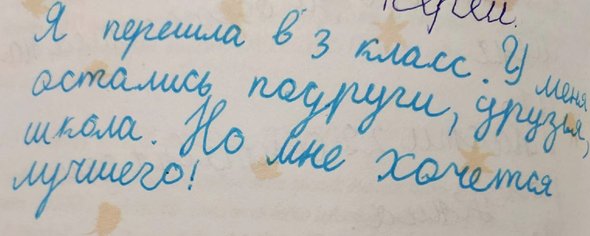 Я перешла в 3 класс. У меня
остались подруги, друзья,
школа. Но мне хочется
лучшего!